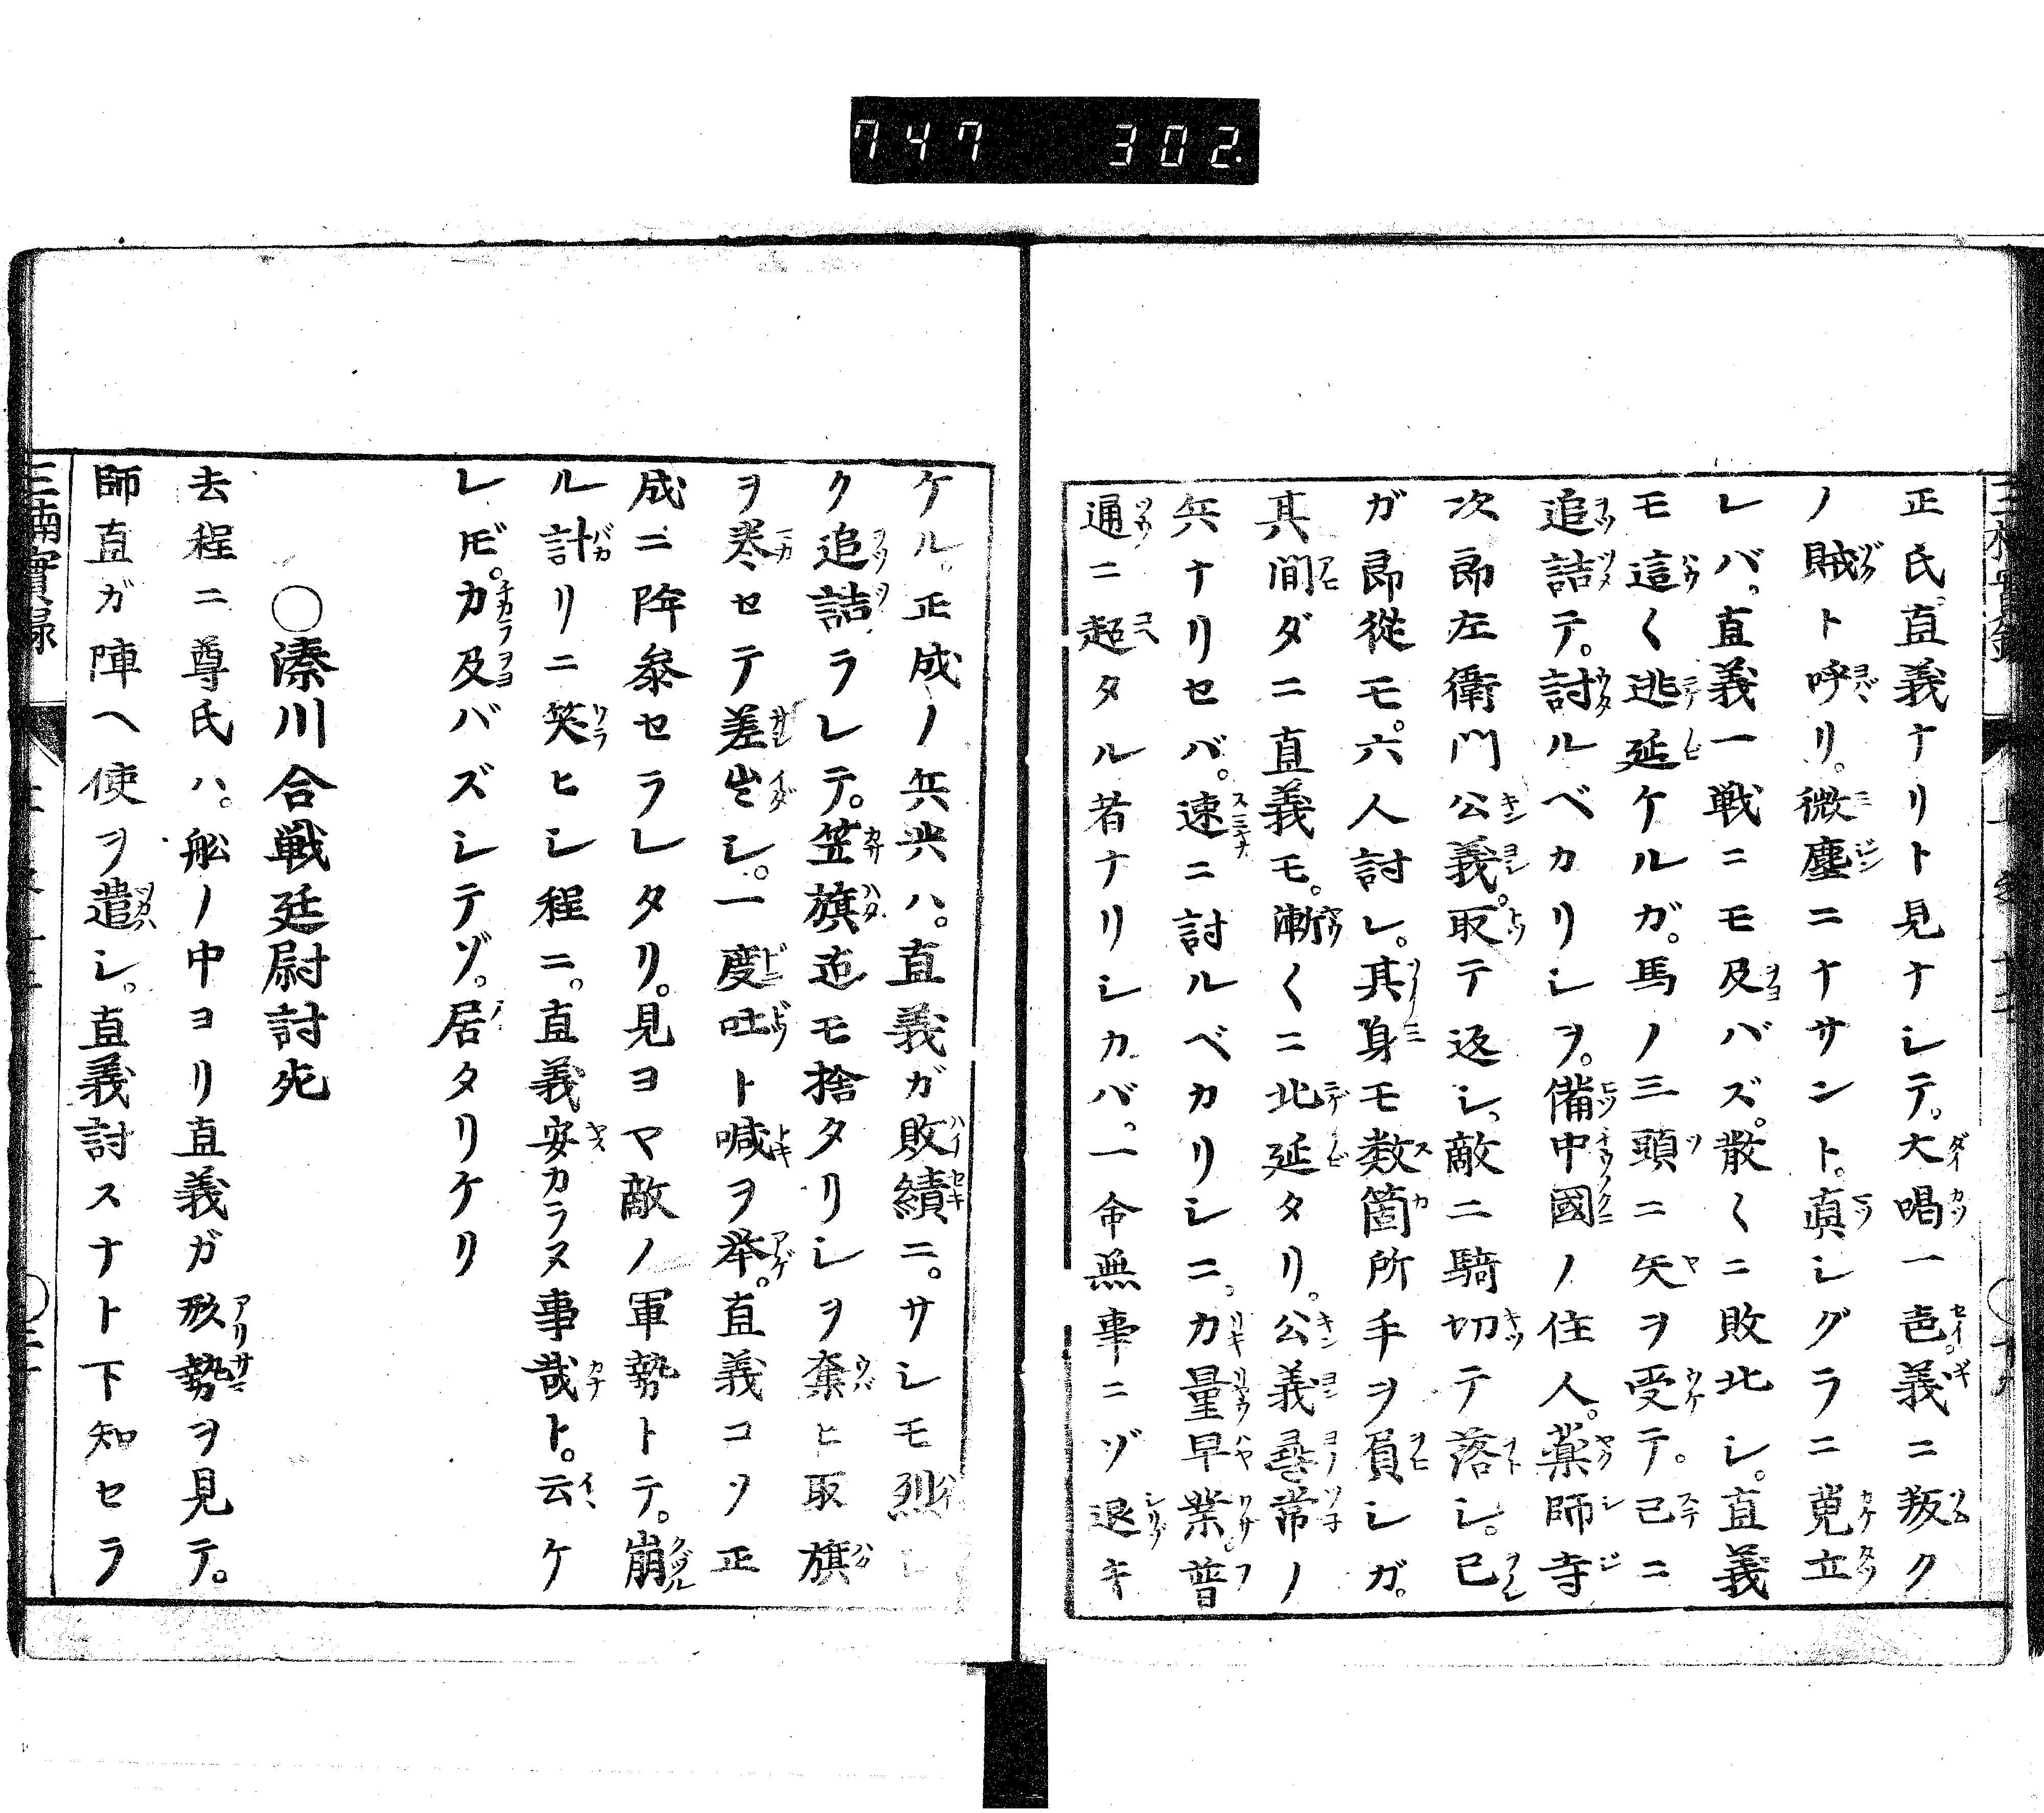 747 302.
正氏。直義ナリト見ナシテ。大喝一声。義ニ叛ク
ノ賊ト呼リ。微塵ニナサント。真シグラニ蒐立
レバ。直義一戦ニモ及バズ。散〱ニ敗北シ。直義
モ這〱逃延ケルガ。馬ノ三頭ニ矢ヲ受テ。已ニ
追詰テ。討ルベカリシヲ。備中國ノ住人。薬師寺
次郎左衛門公義。取テ返シ。敵二騎切テ落シ。己
ガ郎従モ。六人討レ。其身モ数箇所手ヲ負シガ。
其間ダニ直義モ。漸〱ニ北延タリ。公義尋常ノ
兵ナリセバ。速ニ討ルベカリシニ。力量早業。普
通ニ超タル者ナリシカバ。一命無事ニゾ退キ
ケル。正成ノ兵共ハ。直義ガ敗績ニ。サシモ烈シ
ク追詰ラレテ。笠旗迄モ捨タリシヲ奪ヒ取旗
ヲ巻セテ差出シ。一度吐ト喊ヲ挙。直義コソ正
成ニ降参セラレタリ。見ヨマ敵ノ軍勢トテ。崩
ル計リニ笑ヒシ程ニ。直義安カラヌ事哉ト。云ケ
レ𪜈。力及バズシテゾ。居タリケリ
〇湊川合戦廷尉討死
去程ニ尊氏ハ。舩ノ中ヨリ直義ガ形勢ヲ見テ。
師直ガ陣ヘ使ヲ遣シ。直義討スナト下知セラ
三楠實録